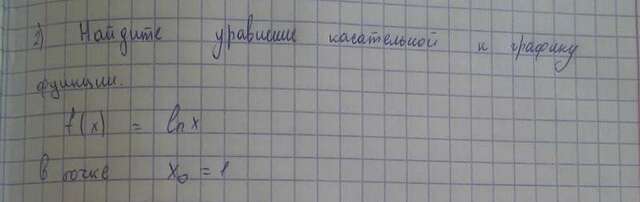 2) Найдите уравнение касательной к графику
функции.
f(x) = ln x
в точке x₀ = 1